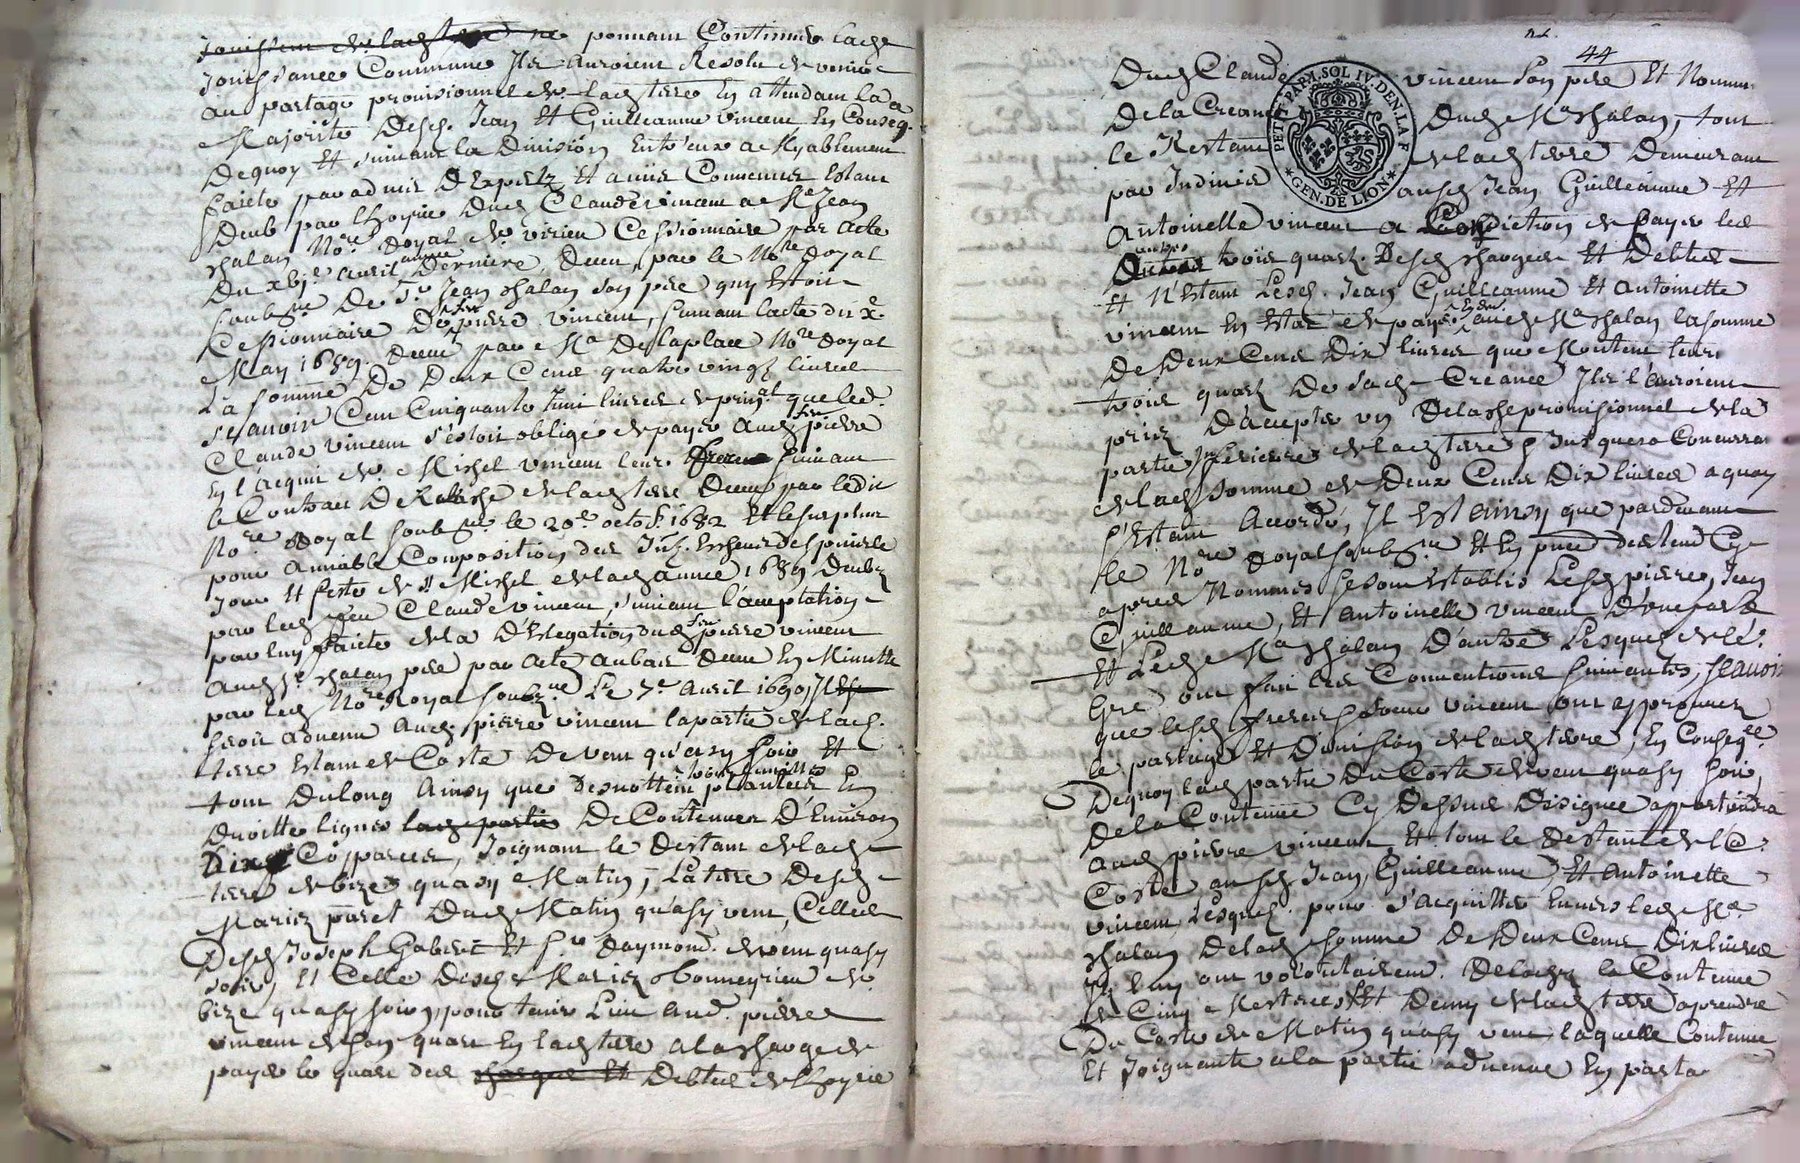 pouvant Continuer lad
Jouissance Commune Ilz auroient Resolu de venir
au partage provisionnel de lad terre En attendant la
Majorité Desd. Jean Et Guilleaume vincent En Conseq.
Dequoy Et suivant la Division Entr'eux amyablement
faicte par advis D'Expertz Et amis Communs Estant
Deub par Dud Claude vincent a Me Jean
chalan Nore Royal de virieu Cessionnaire par Acte
Du xbje avril Derniere, Receu par le Nore Royal
Soubsne De Sr Jean chalan son pere quy Estoit
Cessionnaire De feu pierre vincent, suivant lacte du x.
May 1689. Receu par Me Delaplace Nore Royal
La somme De Deux Cens quatre vingt livres
Scavoir Cent Cinquante huit livres de prinal que led.
Claude vincent s'estoit obligé de payer Aud feu pierre
En l'acquit de Michel vincent leur frere suivant
le Contract De Relasche de lad terre Receu par ledit
Nore Royal soubsne le 20e octob. 1682 Et le surplus
pour amiable Composition des
Jour Et feste de St Michel de lad annee 1689 Deubz
par led feu Claude vincent, suivant l'acceptation
par luy faicte de la Delegation dud feu pierre vincent
Aud Sr chalan pere par Acte Aubas Receu En Minutte
par led Nore Royal soubzne Le 7e Avril 1690
seroit advenu Aud. pierre vincent la partie de lad.
terre Estant du Coste De vent quasy soir Et
tout Dulong Ainsy que trois limittes plantees En
Droitte lignes lad partie De Contenue D'Environ
Dix Cosparees, Joignant le Restant de lad
terre de bize quasy Matin, La terre Desd
Mariez paret Dud Matin quasy vent, Celles
Desd Joseph Gabert Et Sr Raymond. de vent quasy
soir, Et Celle Desd Mariez Bonneyrieu de
bize quasy soir, pour tenir Lieu Aud. pierre
vincent de son quart En lad terre a la charge de
payer le quart des charges Et Debtes de
44
Dud Claude vincent son pere Et Nomm.
De la Creance Dud Me chalan, tout
le Restant de lad terre Demeurant
par Indivis ausd Jean Guilleaume Et
Antoinette vincent a Condiction de payer les
autres trois quartz. Desd charges Et Debtes
Et N'Estant Lesd. Jean Guilleaume Et Antoinette
vincent En Estat de payer aud Me chalan la somme
De Deux Cens Dix livres que Montent leurs
trois quartz De lad Creance Ilz l'auroient
priez D'accepter un Relasche provisionnel de la
partie Inferieure de lad terre Jusques a Concurra
de lad somme de Deux Cens Dix livres a quoy
s'Estant Accordé, Il Est ainsy que pardevant
le Nore Royal soubsne Et En pnce des tesm Cy
apres Nommes se sont Establis Lesd pierre, Jean
Guilleaume, Et Antoinette vincent D'une part
Et Led Me chalan D'autre Lesquelz de lé.
Gré ont fait les Conventions suivantes, scavoir
que lesd freres soeur vincent ont approuvez
le partage Et Division de lad terre, En Conseqce
Dequoy lad partie Du Costé de vent quasy soir
De la Contenue Cy Dessus Designee appartiendra
Aud pierre vincent, Et tout le Restant de la
Coste ausd Jean, Guilleaume, Et Antoinette
vincent Lesquelz. pour s'acquitter Envers led Me
chalan De lad somme De Deux Cens Dix livres
luy ont volontairemt. Relaché la Contenue
de Cinq Mestrees Et Demy de lad terre a prendre
Du Costé de Matin quasy vent laquelle Contenue
Et Joignante a la partie advenue En parta
PETIT PAPR. SOL IV. DEN. LA F
GEN. DE LION